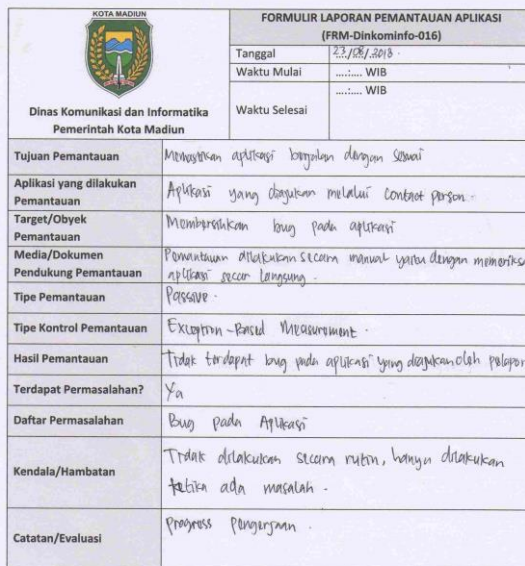 KOTA MADIUN
Dinas Komunikasi dan Informatika
Pemerintah Kota Madiun
FORMULIR LAPORAN PEMANTAUAN APLIKASI
(FRM-Dinkominfo-016)
Tanggal 23/08/2018.
Waktu Mulai ....:.... WIB
Waktu Selesai ....:.... WIB
Tujuan Pemantauan Memastikan aplikasi berjalan dengan sesuai
Aplikasi yang dilakukan
Pemantauan Aplikasi yang diajukan melalui contact person.
Target/Obyek
Pemantauan Membersihkan bug pada aplikasi
Media/Dokumen
Pendukung Pemantauan Pemantauan dilakukan secara manual yaitu dengan memeriksa
aplikasi secar langsung.
Tipe Pemantauan Passive.
Tipe Kontrol Pemantauan Exception-Based Measurement.
Hasil Pemantauan Tidak terdapat bug pada aplikasi yang diajukan oleh pelapor
Terdapat Permasalahan? Ya
Daftar Permasalahan Bug pada Aplikasi
Kendala/Hambatan Tidak dilakukan secara rutin, hanya dilakukan
ketika ada masalah.
Catatan/Evaluasi Progress Pengerjaan.